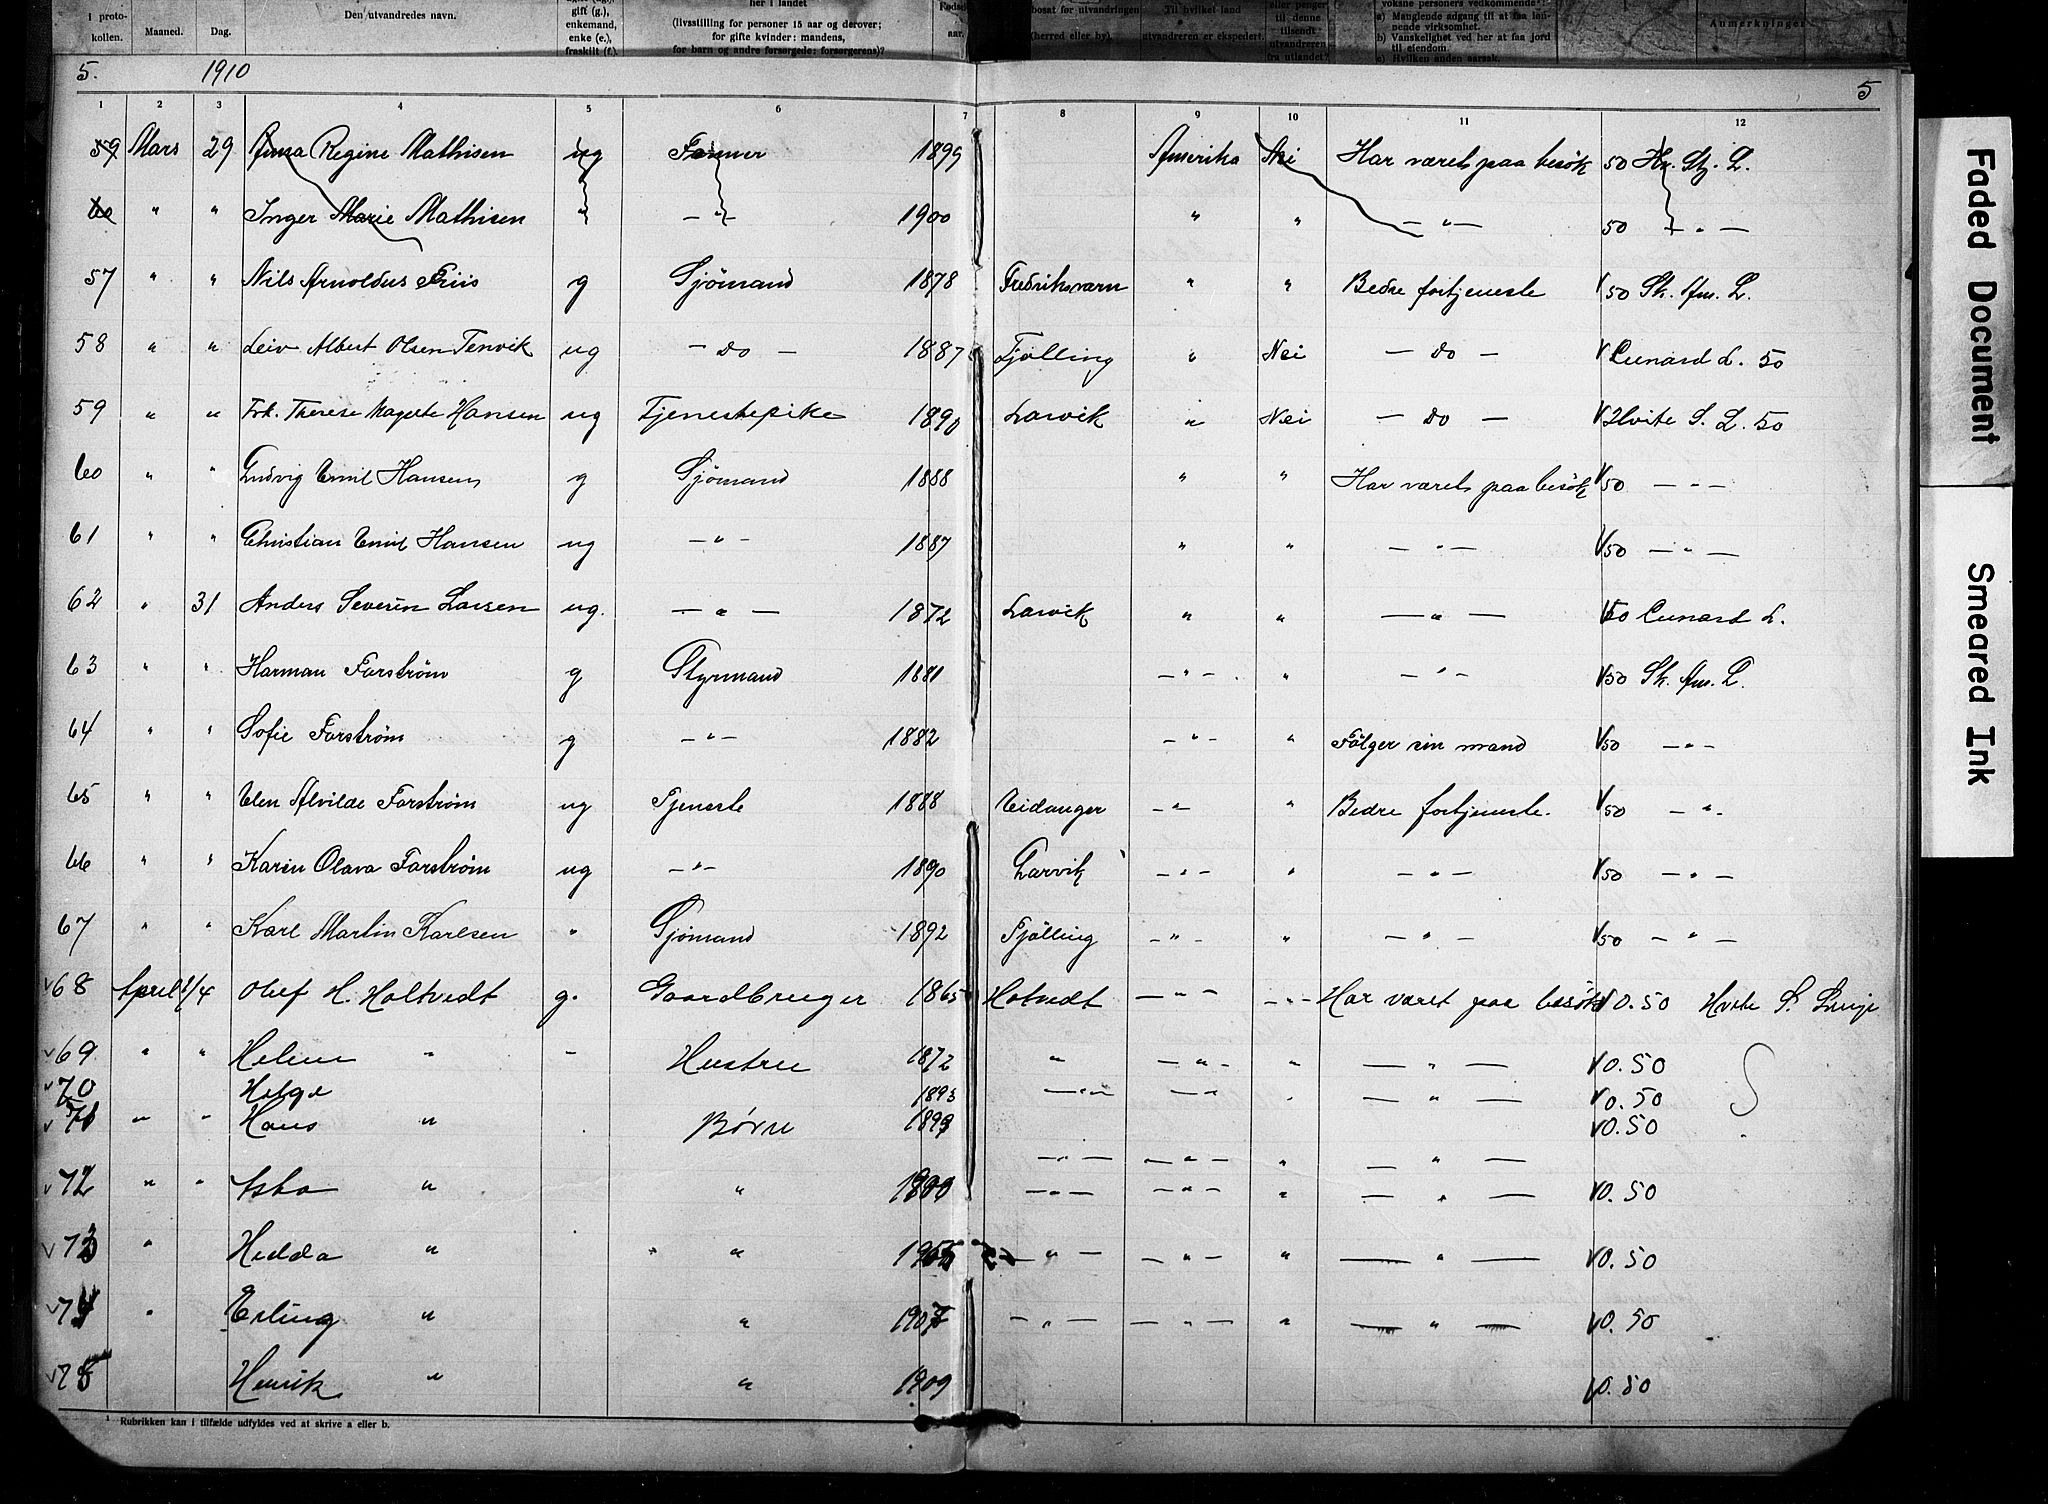 I proto-
kollen.
Maaned.
Dag.
Den utvandredes navn.
gift (g.),
enkemand,
enke (e.),
fraskilt (f.)
her i landet
(livsstilling for personer 15 aar og derover;
for gifte kvinder: mandens,
for barn og andre forsørgede: forsørgerens)?
Fødsels
aar.
bosat før utvandringen
(herred eller by).
Til hvilket land
utvandreren er ekspedert.
eller penger
til denne
tilsendt
utvandreren
fra utlandet?
voksne personers vedkommende:
a) Manglende adgang til at faa løn-
nende virksomhet.
b) Vanskelighet ved her at faa jord
til eiendom.
c) Hvilken anden aarsak.
Anmerkninger
5. 1910 5
1 2 3 4 5 6 7 8 9 10 11 12
59 Mars 29 Anna Regine Mathisen ug Farmer 1899 Amerika Nei Har været paa besök 50
60 " " Inger Marie Mathisen " — " — 1900 " " — " — 50 — " —
57 " " Nils Arnoldus Friis g Sjömand 1878 Fredriksværn " " Bedre fortjeneste V 50 Sk. Am. L.
58 " " Leiv Albert Olsen Tenvik ug — Do — 1887 Tjølling " Nei — Do — V Cunard L. 50
59 " " Frk. Therese Magrete Hansen ug Tjenestepike 1890 Larvik " Nei — Do — V Hvite S. L. 50
60 " " Ludvig Emil Hansen g Sjömand 1888 " " Har været paa besök V 50 — " —
61 " " Christian Emil Hansen ug — " — 1887 " " — " — V 50 — " —
62 " 31 Anders Severin Larsen ug. — " — 1872 Larvik " " — " — V 50 Cunard L.
63 " " Harman Forström g Styrmand 1881 — " — " — " — V 50 Sk. Am. L.
64 " " Sofie Forström g — " — 1882 — " — " Fölger sin mand V 50 — " —
65 " " Elen Alvilde Forström ug Tjeneste 1888 Eidanger — " " Bedre fortjeneste. V 50 — " .
66 " " Karen Olava Forström ug — " — 1890 Larvik — " — " — " — V 50 — " —
67 " " Karl Martin Karlsen " Sjömand 1892 Tjölling — " — " — " — V 50 — " —
v 68 April 1/4 Olef H. Holtvedt g. Gaardbruger 1865 Hotvedt — " — — " — Har været paa besök V 0.50 Hvite S. Linje
v 69 " " Helene " " Hustru 1872 " — " — " — " — V 0.50
v 70 Helge 1893 — " — — " — " — " — V 0.50
v 71 " " Hans " Børn 1899 — " — — " — " — " — V 0.50
v 72 " " Asta " " 1900 — " — — " — " — " — V 0.50
v 73 " Hedda " " " — " — — " — " — " — V 0.50
v 74 " Erling " " 1907 — " — — " — " — " — V 0.50
v 75 Henrik " " 1909 V 0.50
¹ Rubrikken kan i tilfælde udfyldes ved at skrive a eller b.
Faded Document
Smeared Ink